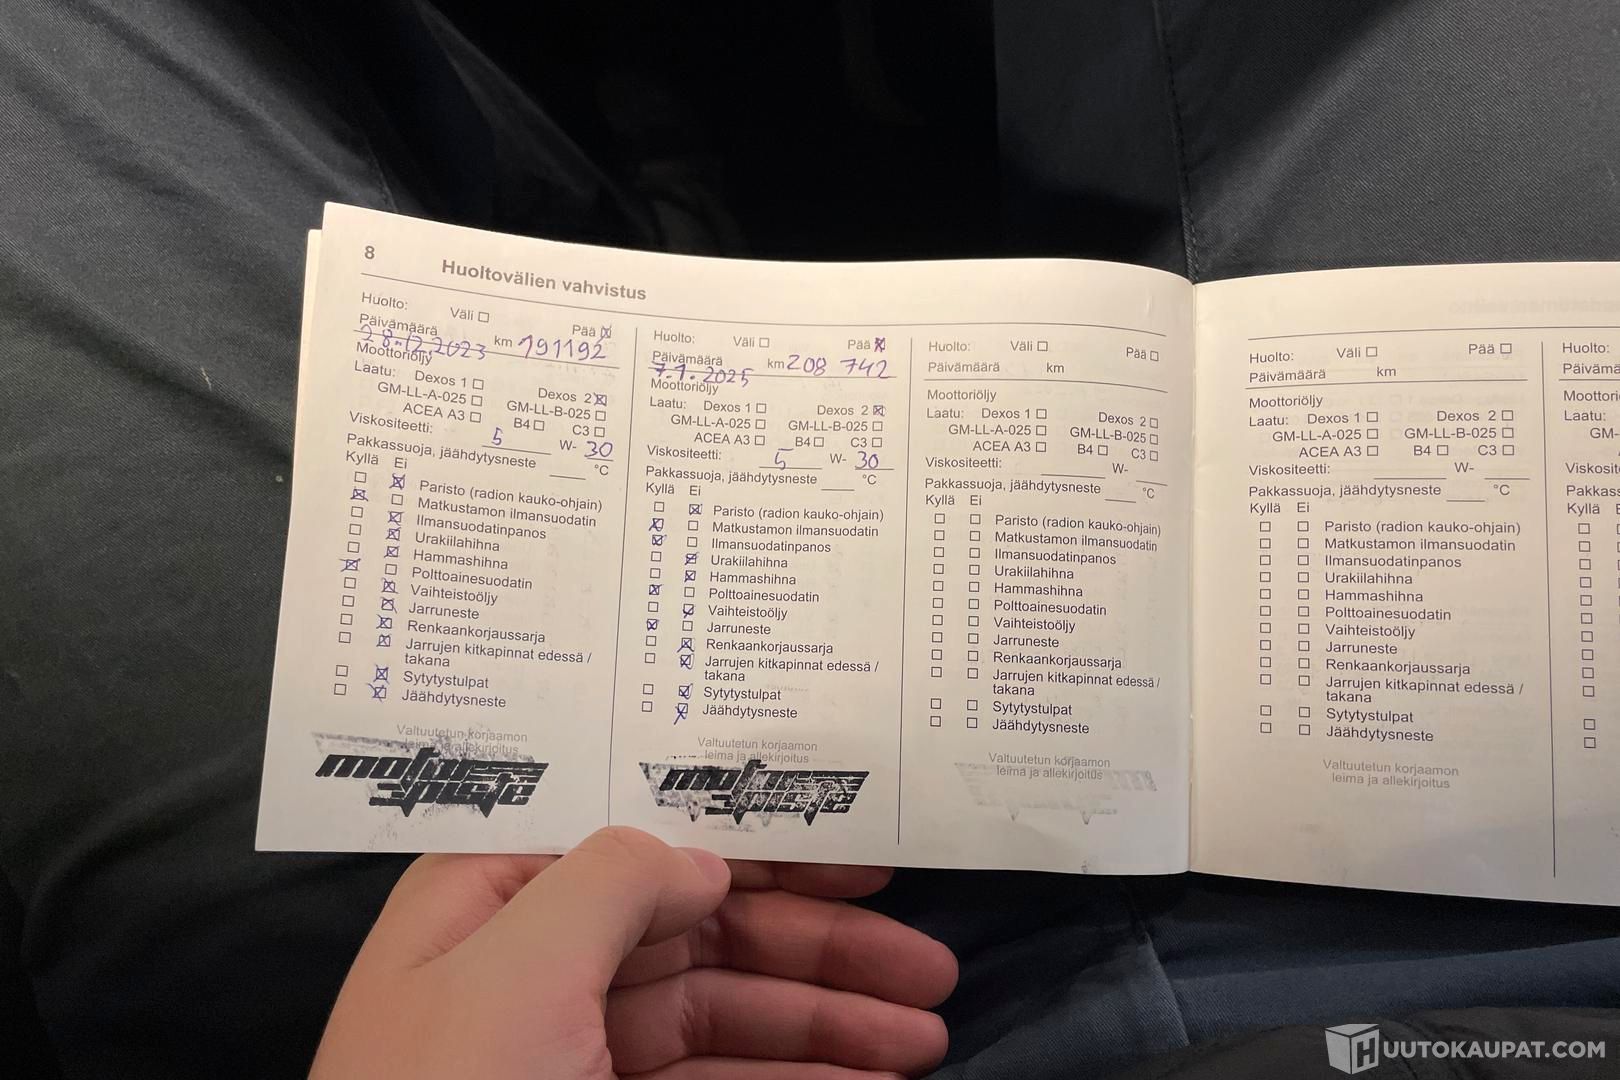 8
Huoltovälien vahvistus
Huolto: Väli ☐ Pää ☒
Päivämäärä 28.12.2023 km 191192
Moottoriöljy
Laatu: Dexos 1 ☐ Dexos 2 ☒
GM-LL-A-025 ☐ GM-LL-B-025 ☐
ACEA A3 ☐ B4 ☐ C3 ☐
Viskositeetti: 5 W- 30
Pakkassuoja, jäähdytysneste ____ °C
Kyllä Ei
☐ ☒ Paristo (radion kauko-ohjain)
☒ ☐ Matkustamon ilmansuodatin
☐ ☒ Ilmansuodatinpanos
☐ ☒ Urakiilahihna
☐ ☒ Hammashihna
☒ ☐ Polttoainesuodatin
☐ ☒ Vaihteistoöljy
☐ ☒ Jarruneste
☐ ☒ Renkaankorjaussarja
☐ ☒ Jarrujen kitkapinnat edessä /
takana
☐ ☒ Sytytystulpat
☐ ☒ Jäähdytysneste
Valtuutetun korjaamon
leima ja allekirjoitus
Huolto: Väli ☐ Pää ☒
Päivämäärä 7.1.2025 km 208 742
Moottoriöljy
Laatu: Dexos 1 ☐ Dexos 2 ☒
GM-LL-A-025 ☐ GM-LL-B-025 ☐
ACEA A3 ☐ B4 ☐ C3 ☐
Viskositeetti: 5 W- 30
Pakkassuoja, jäähdytysneste ____ °C
Kyllä Ei
☐ ☒ Paristo (radion kauko-ohjain)
☒ ☐ Matkustamon ilmansuodatin
☒ ☐ Ilmansuodatinpanos
☐ ☒ Urakiilahihna
☐ ☒ Hammashihna
☒ ☐ Polttoainesuodatin
☐ ☒ Vaihteistoöljy
☒ ☐ Jarruneste
☐ ☒ Renkaankorjaussarja
☐ ☒ Jarrujen kitkapinnat edessä /
takana
☐ ☒ Sytytystulpat
☐ ☒ Jäähdytysneste
Valtuutetun korjaamon
leima ja allekirjoitus
Huolto: Väli ☐ Pää ☐
Päivämäärä km
Moottoriöljy
Laatu: Dexos 1 ☐ Dexos 2 ☐
GM-LL-A-025 ☐ GM-LL-B-025 ☐
ACEA A3 ☐ B4 ☐ C3 ☐
Viskositeetti: ____ W-
Pakkassuoja, jäähdytysneste ____ °C
Kyllä Ei
☐ ☐ Paristo (radion kauko-ohjain)
☐ ☐ Matkustamon ilmansuodatin
☐ ☐ Ilmansuodatinpanos
☐ ☐ Urakiilahihna
☐ ☐ Hammashihna
☐ ☐ Polttoainesuodatin
☐ ☐ Vaihteistoöljy
☐ ☐ Jarruneste
☐ ☐ Renkaankorjaussarja
☐ ☐ Jarrujen kitkapinnat edessä /
takana
☐ ☐ Sytytystulpat
☐ ☐ Jäähdytysneste
Valtuutetun korjaamon
leima ja allekirjoitus
Huolto: Väli ☐ Pää ☐
Päivämäärä km
Moottoriöljy
Laatu: Dexos 1 ☐ Dexos 2 ☐
GM-LL-A-025 ☐ GM-LL-B-025 ☐
ACEA A3 ☐ B4 ☐ C3 ☐
Viskositeetti: ____ W-
Pakkassuoja, jäähdytysneste ____ °C
Kyllä Ei
☐ ☐ Paristo (radion kauko-ohjain)
☐ ☐ Matkustamon ilmansuodatin
☐ ☐ Ilmansuodatinpanos
☐ ☐ Urakiilahihna
☐ ☐ Hammashihna
☐ ☐ Polttoainesuodatin
☐ ☐ Vaihteistoöljy
☐ ☐ Jarruneste
☐ ☐ Renkaankorjaussarja
☐ ☐ Jarrujen kitkapinnat edessä /
takana
☐ ☐ Sytytystulpat
☐ ☐ Jäähdytysneste
Valtuutetun korjaamon
leima ja allekirjoitus
Huolto:
Laatu:
GM-
Kyllä
HUUTOKAUPAT.COM